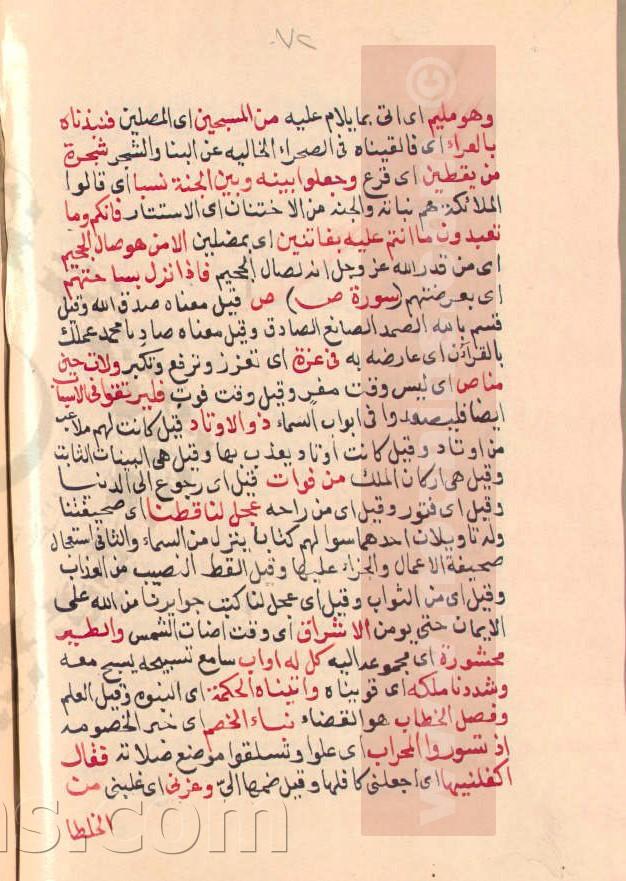 ٧٢
وهو مليم اى اتى بما يلام عليه من المسبحين اى المصلين فنبذناه
بالعراء اى فالقيناه فى الصحراء الخاليه عن ابنا والشجر شجرة
من يقطين اى قرع وجعلوا بينه وبين الجنة نسبا اى قالوا
الملائكة هم بناته والجنة من الاجتنان اى الاستتار فانكم وما
تعبدون ما انتم عليه بفاتنين اى بمضلين الا من هو صال الجحيم
اى من قدر الله عز وجل انه لصال الجحيم فاذا نزل بساحتهم
اى بعرصتهم (سورة ص) ص قيل معناه صدق الله وقيل
قسم بالله الصمد الصانع الصادق وقيل معناه صاد يا محمد عملك
بالقرآن اى عارضه به فى عزة اى تعزز وترفع وتكبر ولات حين
مناص اى ليس وقت مفر وقيل وقت فوت فليرتقوا فى الاسباب
ايضا فليصعدوا فى ابواب السماء ذو الاوتاد قيل كانت لهم ملاعب
من اوتاد وقيل كانت اوتاد يعذب بها وقيل هى البينات الثابت
وقيل هى اركان الملك من فواق قيل اى رجوع الى الدنيا
وقيل اى فتور وقيل اى من راحه عجل لنا قطنا اى صحيفتنا
وله تاويلات احدهما سوالهم كتابا ينزل من السماء والثانى استعجال
صحيفة الاعمال والجزاء عليها وقيل القط النصيب من العذاب
وقيل اى من الثواب وقيل اى عجل لنا كتب جوايزنا من الله على
الايمان حتى يومن الاشراق اى وقت اضات الشمس والطير
محشورة اى مجموعه اليه كل له اواب سامع تسبيحه يسبح معه
وشددنا ملكه اى قويناه واتيناه الحكمة اى النبوه وقيل العلم
وفصل الخطاب هو القضاء نباء الخصم اى خبر الخصومه
اذ تسوروا المحراب اى علوا وتسلقوا موضع صلاته فقال
اكفلنيها اى اجعلنى كافلها وقيل ضمها الىّ وعزنى اى غلبنى من
الخلطا